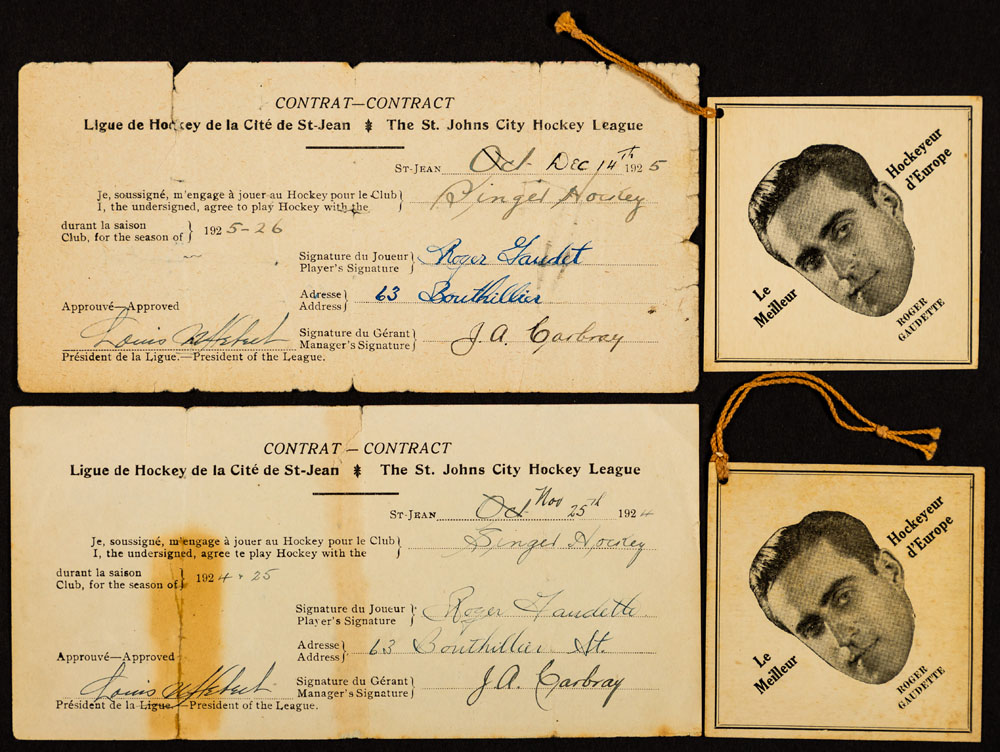 CONTRAT—CONTRACT
Ligue de Hockey de la Cité de St-Jean The St. Johns City Hockey League
ST-JEAN Oct. DEC 14th 1925
Je, soussigné, m'engage à jouer au Hockey pour le Club
I, the undersigned, agree to play Hockey with the
Singer Hockey
durant la saison
Club, for the season of
1925-26
Signature du Joueur
Player's Signature
Roger Gaudet
Adresse
Address
63 Bouthillier
Approuvé—Approved
Louis Hebert
Signature du Gérant
Manager's Signature
J.A. Carbray
Président de la Ligue.—President of the League.
Hockeyeur
d'Europe
Le
Meilleur
ROGER
GAUDETTE
CONTRAT — CONTRACT
Ligue de Hockey de la Cité de St-Jean The St. Johns City Hockey League
ST-JEAN Oct Nov 25th 1924
Je, soussigné, m'engage à jouer au Hockey pour le Club
I, the undersigned, agree to play Hockey with the
Singer Hockey
durant la saison
Club, for the season of
1924-25
Signature du Joueur
Player's Signature
Roger Gaudette
Adresse
Address
63 Bouthillier St.
Approuvé—Approved
Louis Hebert
Signature du Gérant
Manager's Signature
J.A. Carbray
Président de la Ligue—President of the League.
Hockeyeur
d'Europe
Le
Meilleur
ROGER
GAUDETTE